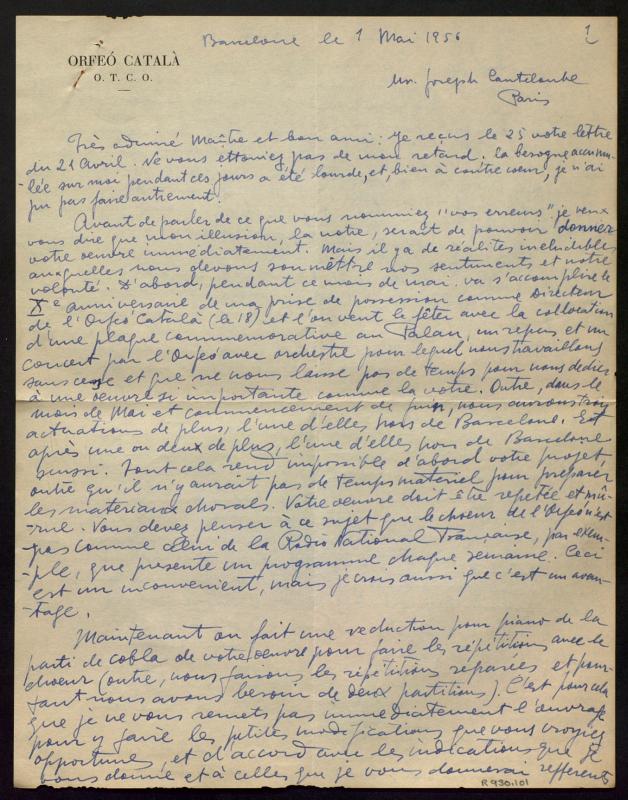 Barcelone le 1 Mai 1956
1
ORFEÓ CATALÀ
O. T. C. O.
Mr. Joseph Canteloube
Paris
Très admiré Maître et bon ami: Je reçus le 25 votre lettre
du 21 Avril. Ne vous ettoniez pas de mon retard. La besogne accumu-
-lée sur moi pendant ces jours a été lourde, et, bien à contre coeur, je n'ai
pu pas faire autrement.
Avant de parler de ce que vous nommiez "vos erreurs" je veux
vous dire que mon illusion, la notre, serait de pouvoir donner
votre oeuvre immédiatement. Mais il y a de réalites ineludibles
auxquelles nous devons soumèttre nos sentiments et notre
volonté. D'abord, pendant ce mois de mai va s'accomplir le
Xe anniversaire de ma prise de possession comme Directeur
de l'Orfeó Català (le 18) et l'on vent le fêter avec la collocation
d'une plaque commemorative au Palau, un repas et un
concert par l'Orfeó avec orchestre pour lequel nous travaillons
sans cesse et que ne nous laisse pas de temps pour nous dedier
à une oeuvre si importante comme la votre. Outre, dans le
mois de Mai et commencement de juin, nous aurons trois
actuations de plus, l'une d'elles, hors de Barcelone. Est
après une ou deux de plus, l'une d'elles hors de Barcelone
aussi. Tout cela rend impossible d'abord votre projet,
outre qu'il n'y aurait pas de temps matériel pour préparer
les matériaux chorals. Votre oeuvre doit être repetée et mû-
rue. Vous devez penser à ce sujet que le choeur de l'Orfeó n'est
pas comme celui de la Radio National Française, par exem-
ple, que presente un programme chaque semaine. Ceci
est un inconvenient, mais je crois aussi que c'est un avan-
tage.
Maintenant on fait une reduction pour piano de la
parti de cobla de votre oeuvre pour faire les répétitions avec le
choeur (outre, nous faisons les répétitions separées et pour-
tant nous avons besoin de deux partitions). C'est pour cela
que je ne vous remets pas immédiatement l'ouvrage
pour y faire les petites modifications que vous croyiez
opportunes, et d'accord avec les indications que je
vous donne et à celles que je vous donnerai refferents
R 930.101